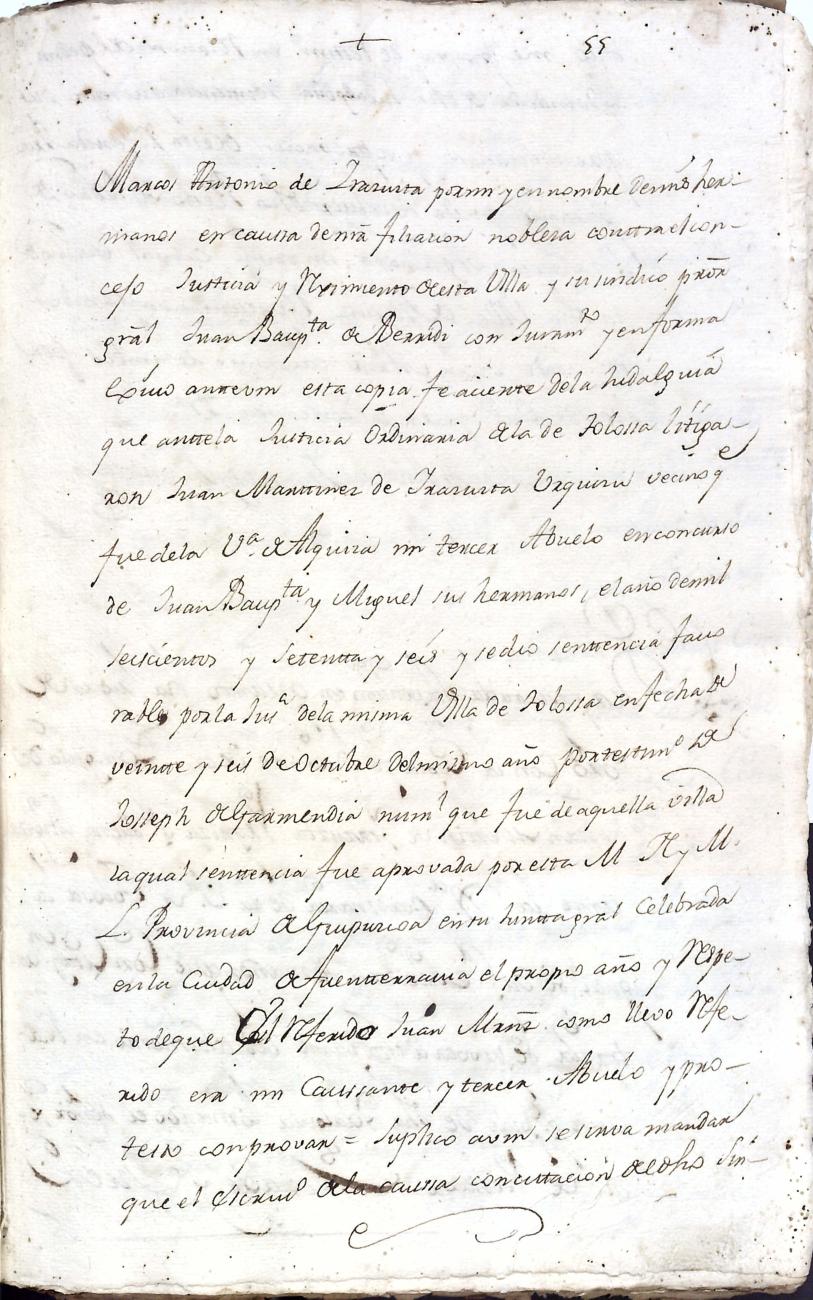 + 55
Marcos Antonio de Irazusta por mi y en nombre de mis her-
manos en caussa de nrã filiacion noblesa conttra el con-
cejo Justicia y Rexímiento de esta Villa y su sindico prõr
grãl Juan Baupta. de Berridi con Juramto y en forma
Exivo antte vm esta copia fe aciente de la hidalguia
que antte la Justicia Ordinaria de la de Tolossa litiga-
ron Juan Marttinez de Irazusta Urquizu vecino qe
fue de la Va. de Alquiza mi tercer Abuelo en concurso
de Juan Baupta. y Miguel sus hermanos, el año de mil
seiscientos y Setentta y seis y se dio senttencia favo
rable por la Jusa. de la misma Villa de Tolossa en fecha de
veintte y seis de Octubre del mismo año por testimo de
Josseph de Garmendia numl que fue de aquella villa
la qual senttencia fue aprovada por esta M N y M.
L. Provincia de Guipuzcoa en su Juntta gral Celebrada
en la Ciudad de fuentterravia el propio año y Respe-
to de que el Referido Juan Mrñz como llevo Refe-
rido era mi Caussante y tercer Abuelo y pro-
testo conprovar = Suplico a vm se sirva mandar
que el Escrivo de la caussa con cittacion de dho Sin-